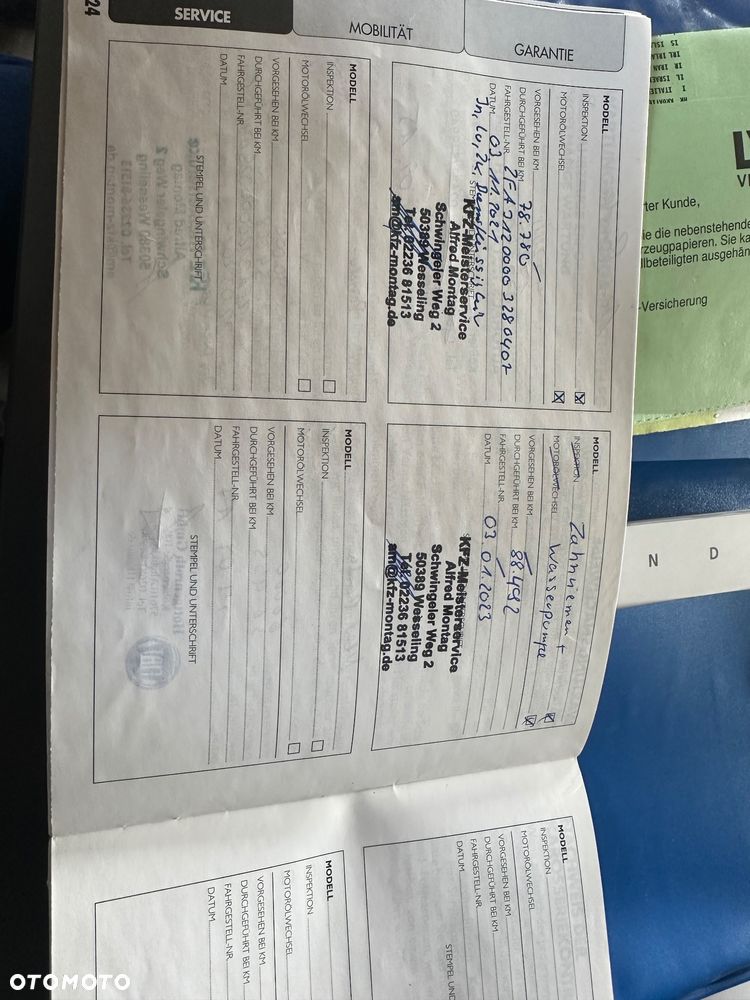 24
SERVICE
MOBILITÄT
GARANTIE
MODELL
INSPEKTION
MOTORÖLWECHSEL
VORGESEHEN BEI KM
DURCHGEFÜHRT BEI KM 78.780
FAHRGESTELL-NR. ZFA31200003280407
DATUM 03 11.2021
In, Lu, Zk, Bremsflüssigkeit
KFZ-Meisterservice
Alfred Montag
Schwingeler Weg 2
50389 Wesseling
Tel. 02236 81513
am@kfz-montag.de
MODELL
INSPEKTION
MOTORÖLWECHSEL
Zahnriemen +
Wasserpumpe
VORGESEHEN BEI KM
DURCHGEFÜHRT BEI KM 88.492
FAHRGESTELL-NR.
DATUM 03 01.2023
KFZ-Meisterservice
Alfred Montag
Schwingeler Weg 2
50389 Wesseling
Tel. 02236 81513
am@kfz-montag.de
MODELL
INSPEKTION
MOTORÖLWECHSEL
VORGESEHEN BEI KM
DURCHGEFÜHRT BEI KM
FAHRGESTELL-NR.
DATUM
STEMPEL UND UNTERSCHRIFT
MODELL
INSPEKTION
MOTORÖLWECHSEL
VORGESEHEN BEI KM
DURCHGEFÜHRT BEI KM
FAHRGESTELL-NR.
DATUM
STEMPEL UND UNTERSCHRIFT
MODELL
INSPEKTION
MOTORÖLWECHSEL
VORGESEHEN BEI KM
DURCHGEFÜHRT BEI KM
FAHRGESTELL-NR.
DATUM
MODELL
INSPEKTION
MOTORÖLWECHSEL
VORGESEHEN BEI KM
DURCHGEFÜHRT BEI KM
FAHRGESTELL-NR.
DATUM
rter Kunde,
ie die nebenstehende
rzeugpapieren. Sie ka
llbeteiligten ausgehän
-Versicherung
N D
OTOMOTO